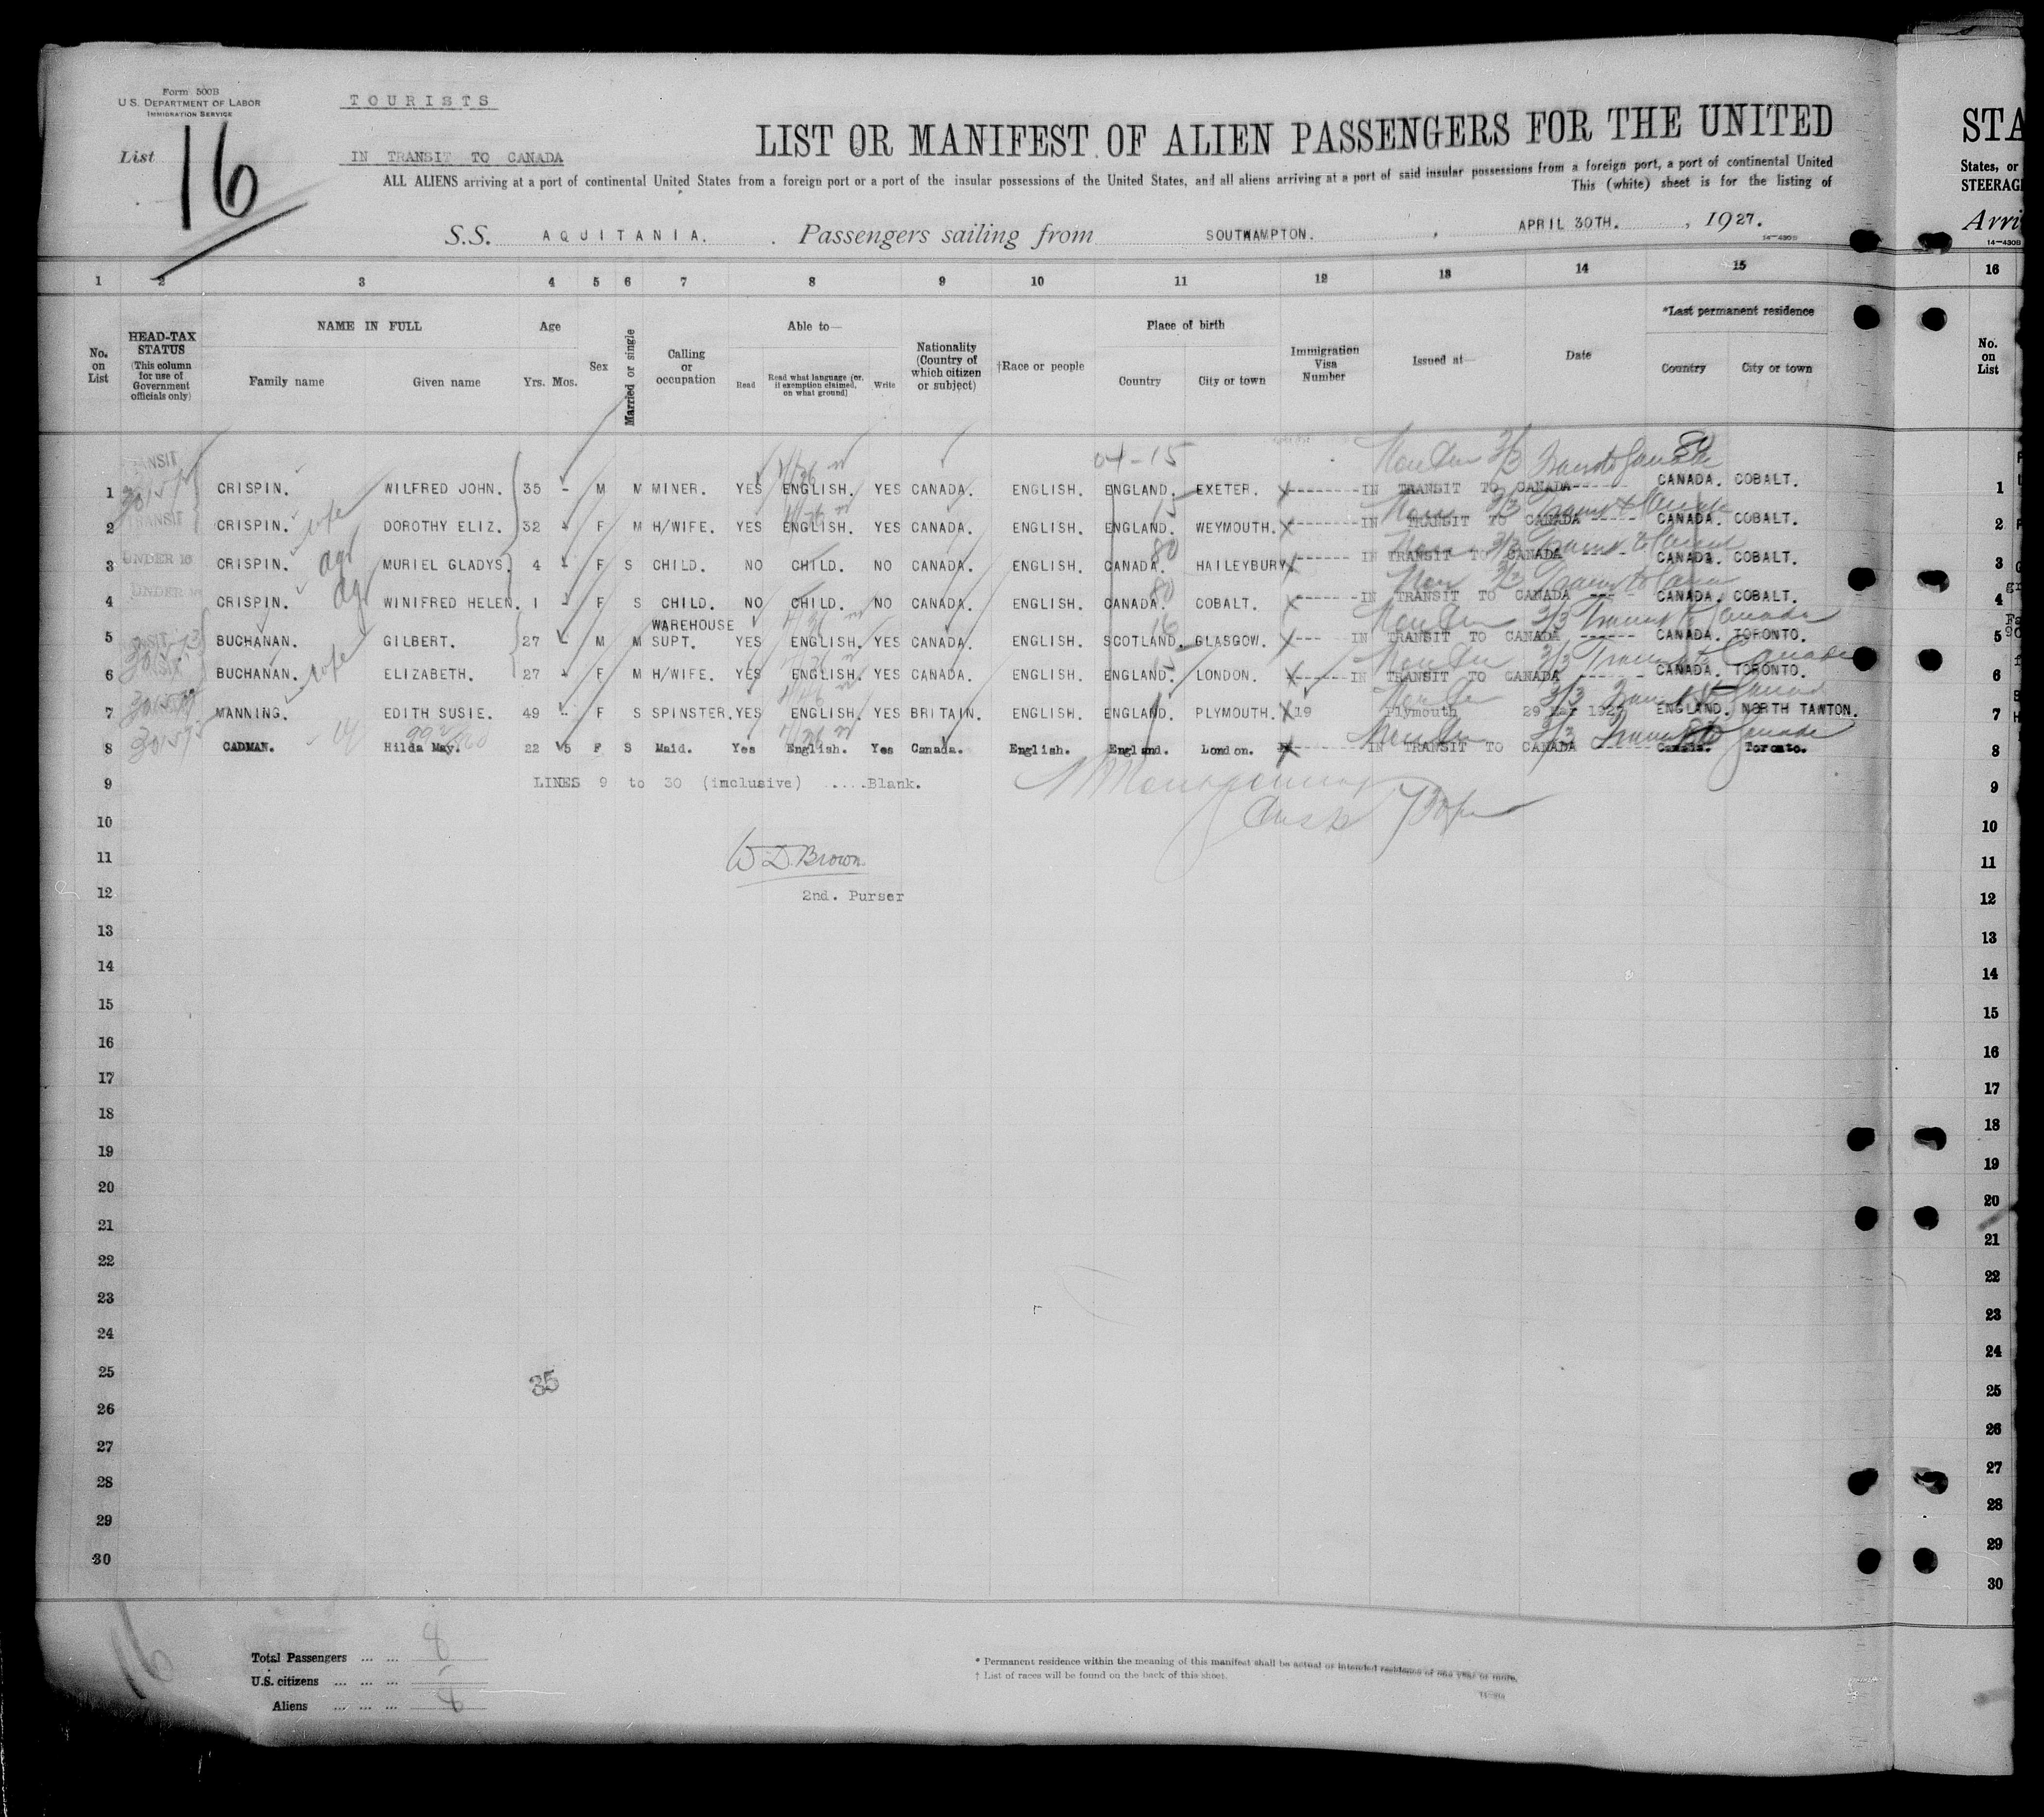 Form 500B
U.S. DEPARTMENT OF LABOR
IMMIGRATION SERVICE
TOURISTS
IN TRANSIT TO CANADA
List 16
LIST OR MANIFEST OF ALIEN PASSENGERS FOR THE UNITED
ALL ALIENS arriving at a port of continental United States from a foreign port or a port of the insular possessions of the United States, and all aliens arriving at a port of said insular possessions from a foreign port, a port of continental United
This (white) sheet is for the listing of
S.S. AQUITANIA. Passengers sailing from SOUTHAMPTON. , APRIL 30TH. , 1927.
14-430B
1 2 3 4 5 6 7 8 9 10 11 12 13 14 15
No. on List
HEAD-TAX STATUS (This column for use of Government officials only)
NAME IN FULL
Family name Given name
Age
Yrs. Mos.
Sex
Married or single
Calling or occupation
Able to—
Read
Read what language (or, if exemption claimed, on what ground)
Write
Nationality (Country of which citizen or subject)
†Race or people
Place of birth
Country City or town
Immigration Visa Number
Issued at—
Date
*Last permanent residence
Country City or town
04-15
1 CRISPIN. WILFRED JOHN. 35 - M M MINER. YES ENGLISH. YES CANADA. ENGLISH. ENGLAND. EXETER. --------IN TRANSIT TO CANADA------ CANADA. COBALT.
2 TRANSIT CRISPIN. wife DOROTHY ELIZ. 32 - F M H/WIFE. YES ENGLISH. YES CANADA. ENGLISH. ENGLAND. WEYMOUTH. -------IN TRANSIT TO CANADA ----- CANADA. COBALT.
3 UNDER 16 CRISPIN. MURIEL GLADYS. 4 - F S CHILD. NO CHILD. NO CANADA. ENGLISH. CANADA. HAILEYBURY ------- IN TRANSIT TO CANADA ---- CANADA. COBALT.
4 UNDER 16 CRISPIN. WINIFRED HELEN. 1 - F S CHILD. NO CHILD. NO CANADA. ENGLISH. CANADA. COBALT. ------IN TRANSIT TO CANADA --- CANADA. COBALT.
5 BUCHANAN. GILBERT. 27 - M M WAREHOUSE SUPT. YES ENGLISH. YES CANADA. ENGLISH. SCOTLAND. GLASGOW. --- IN TRANSIT TO CANADA ------ CANADA. TORONTO.
6 BUCHANAN. wife ELIZABETH. 27 - F M H/WIFE. YES ENGLISH. YES CANADA. ENGLISH. ENGLAND. LONDON. ------IN TRANSIT TO CANADA ------- CANADA. TORONTO.
7 MANNING. EDITH SUSIE. 49 - F S SPINSTER. YES ENGLISH. YES BRITAIN. ENGLISH. ENGLAND. PLYMOUTH. 19 Plymouth 29 Mar 1927 ENGLAND. NORTH TAWTON.
8 CADMAN. Hilda May. 22 5 F S Maid. Yes English. Yes Canada. English. England. London. --------IN TRANSIT TO CANADA ------ Canada. Toronto.
9 LINES 9 to 30 (inclusive) .....Blank.
10
11 W D Brown
12 2nd. Purser
13
14
15
16
17
18
19
20
21
22
23
24
25 35
26
27
28
29
30
16
Total Passengers ... ... 8
U.S. citizens ... ... ...
Aliens ... ... ... 8
* Permanent residence within the meaning of this manifest shall be actual or intended residence of one year or more.
† List of races will be found on the back of this sheet.
STA
States, or
STEERAG
Arri
14-430B
16
No. on List
1
2
3
4
5
6
7
8
9
10
11
12
13
14
15
16
17
18
19
20
21
22
23
24
25
26
27
28
29
30